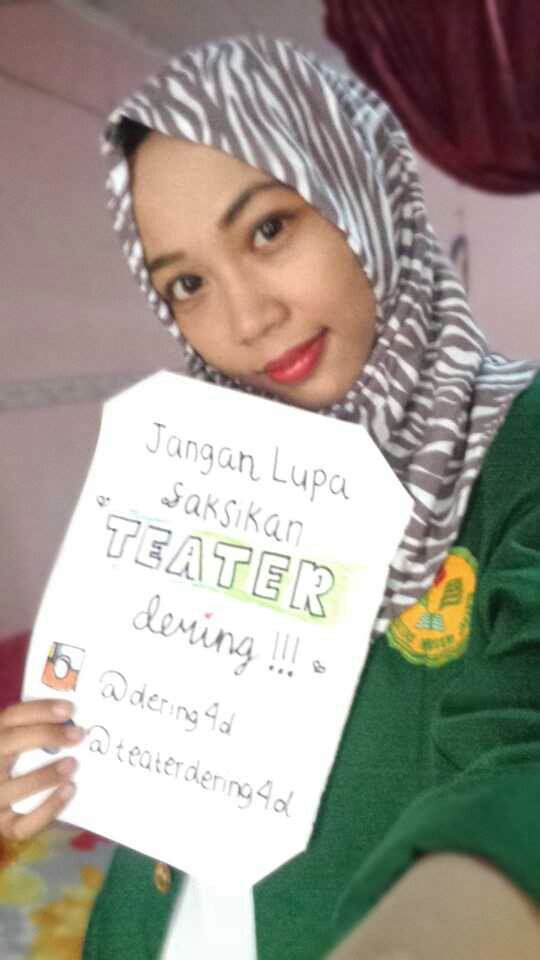 Jangan Lupa
Saksikan
TEATER
dering !!!
@dering4d
@teaterdering4d